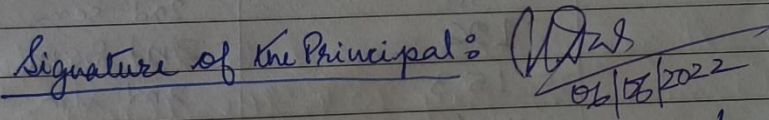 Signature of the Principal:
06/06/2022